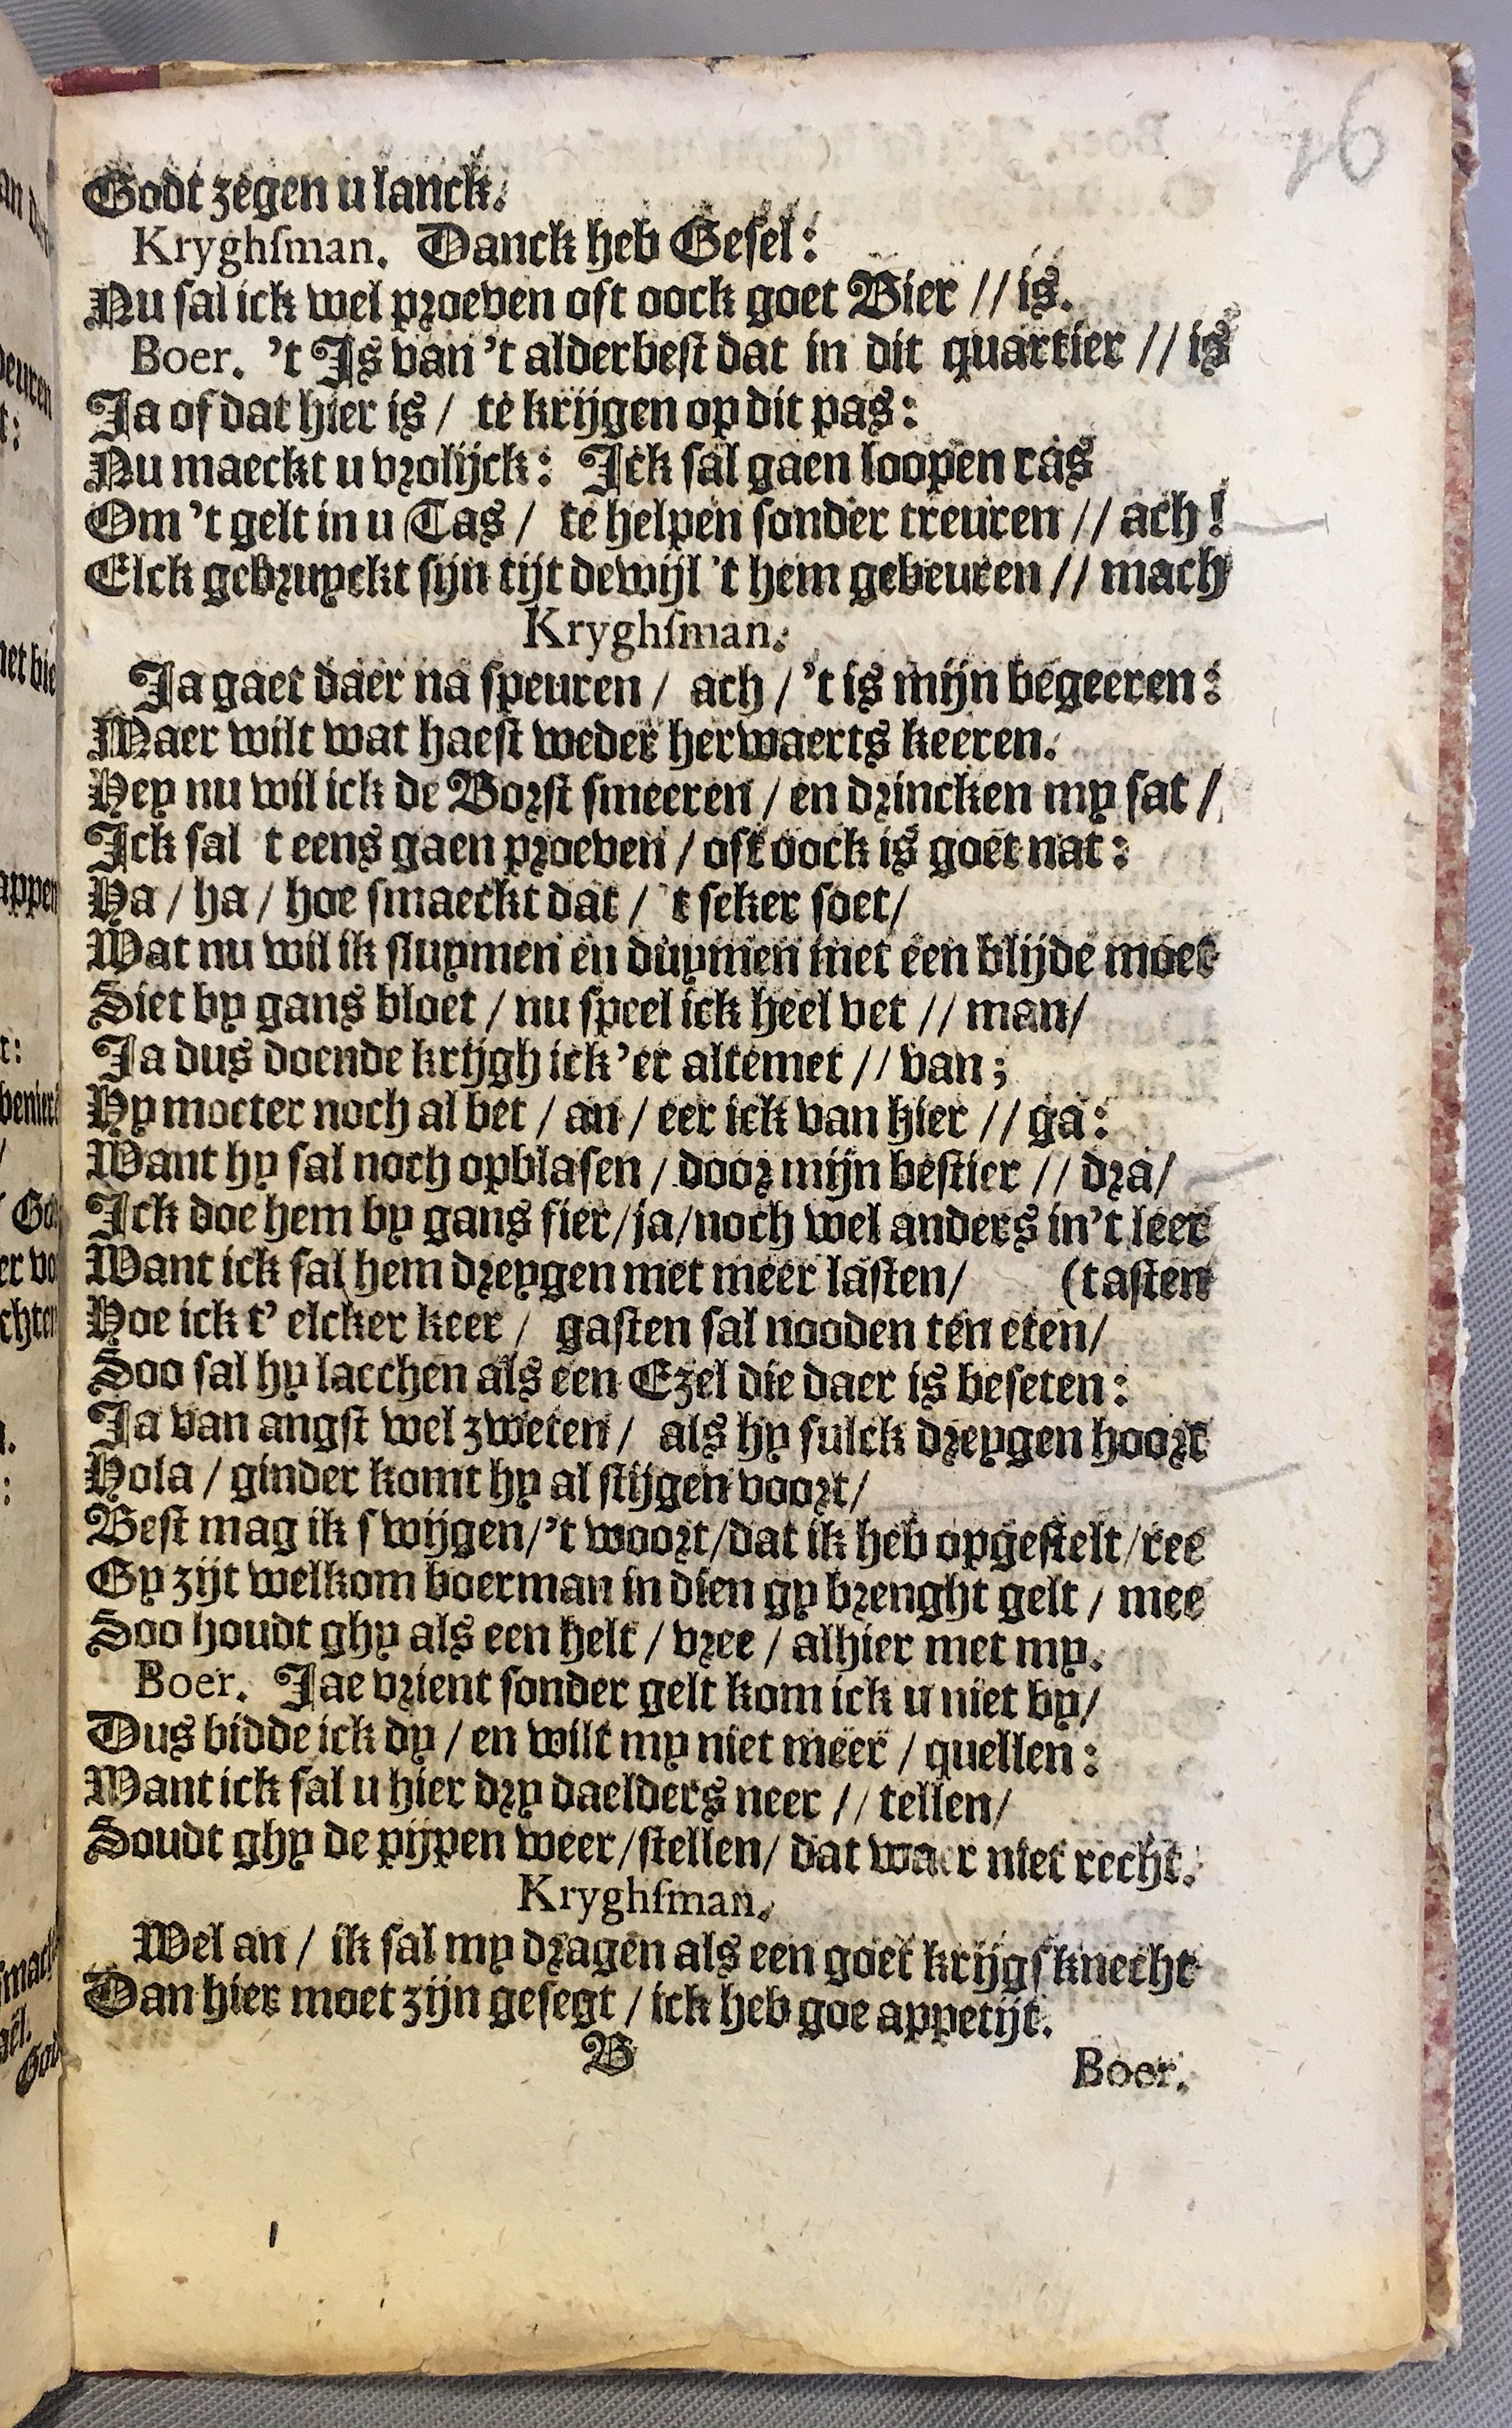 16
Godt zegen u lanck.
Kryghſman. Danck heb Geſel:
Nu ſal ick wel proeven oft oock goet Bier // is.
Boer. 't Is van 't alderbeſt dat in dit quartier // is
Ja of dat hier is / te krijgen op dit pas:
Nu maeckt u vrolijck: Ick ſal gaen loopen ras
Om 't gelt in u Tas / te helpen ſonder treuren // ach!
Elck gebruyckt ſijn tijt dewijl 't hem gebeuren // mach
Kryghſman.
Ja gaet daer na ſpeuren / ach / 't is mijn begeeren:
Maer wilt wat haeſt weder herwaerts keeren.
Hey nu wil ick de Borſt ſmeeren / en drincken my ſat /
Ick ſal t eens gaen proeven / oft oock is goet nat:
Ha / ha / hoe ſmaeckt dat / 't ſeker ſoet /
Wat nu wil ik ſluymen en duymen met een blijde moet
Siet by gans bloet / nu ſpeel ick heel vet // man /
Ja dus doende krijgh ick 'er altemet // van;
Hy moeter noch al bet / an / eer ick van hier // ga:
Want hy ſal noch opblaſen / door mijn beſtier // dra /
Ick doe hem by gans fier / ja / noch wel anders in't leer
Want ick ſal hem dreygen met meer laſten / (taſten
Hoe ick t' elcker keer / gaſten ſal nooden ten eten /
Soo ſal hy lacchen als een Ezel die daer is beſeten:
Ja van angſt wel zweten / als hy ſulck dreygen hoort
Hola / ginder komt hy al ſtijgen voort /
Beſt mag ik ſwijgen / 't woort / dat ik heb opgeſtelt / ree
Gy zijt welkom boerman in dien gy brenght gelt / mee
Soo houdt ghy als een helt / vree / alhier met my.
Boer. Jae vrient ſonder gelt kom ick u niet by /
Dus bidde ick dy / en wilt my niet meer / quellen:
Want ick ſal u hier dry daelders neer // tellen /
Soudt ghy de pijpen weer / ſtellen / dat waer niet recht.
Kryghſman.
Wel an / ik ſal my dragen als een goet krijgſknecht
Dan hier moet zijn geſegt / ick heb goe appetijt.
B
Boer.